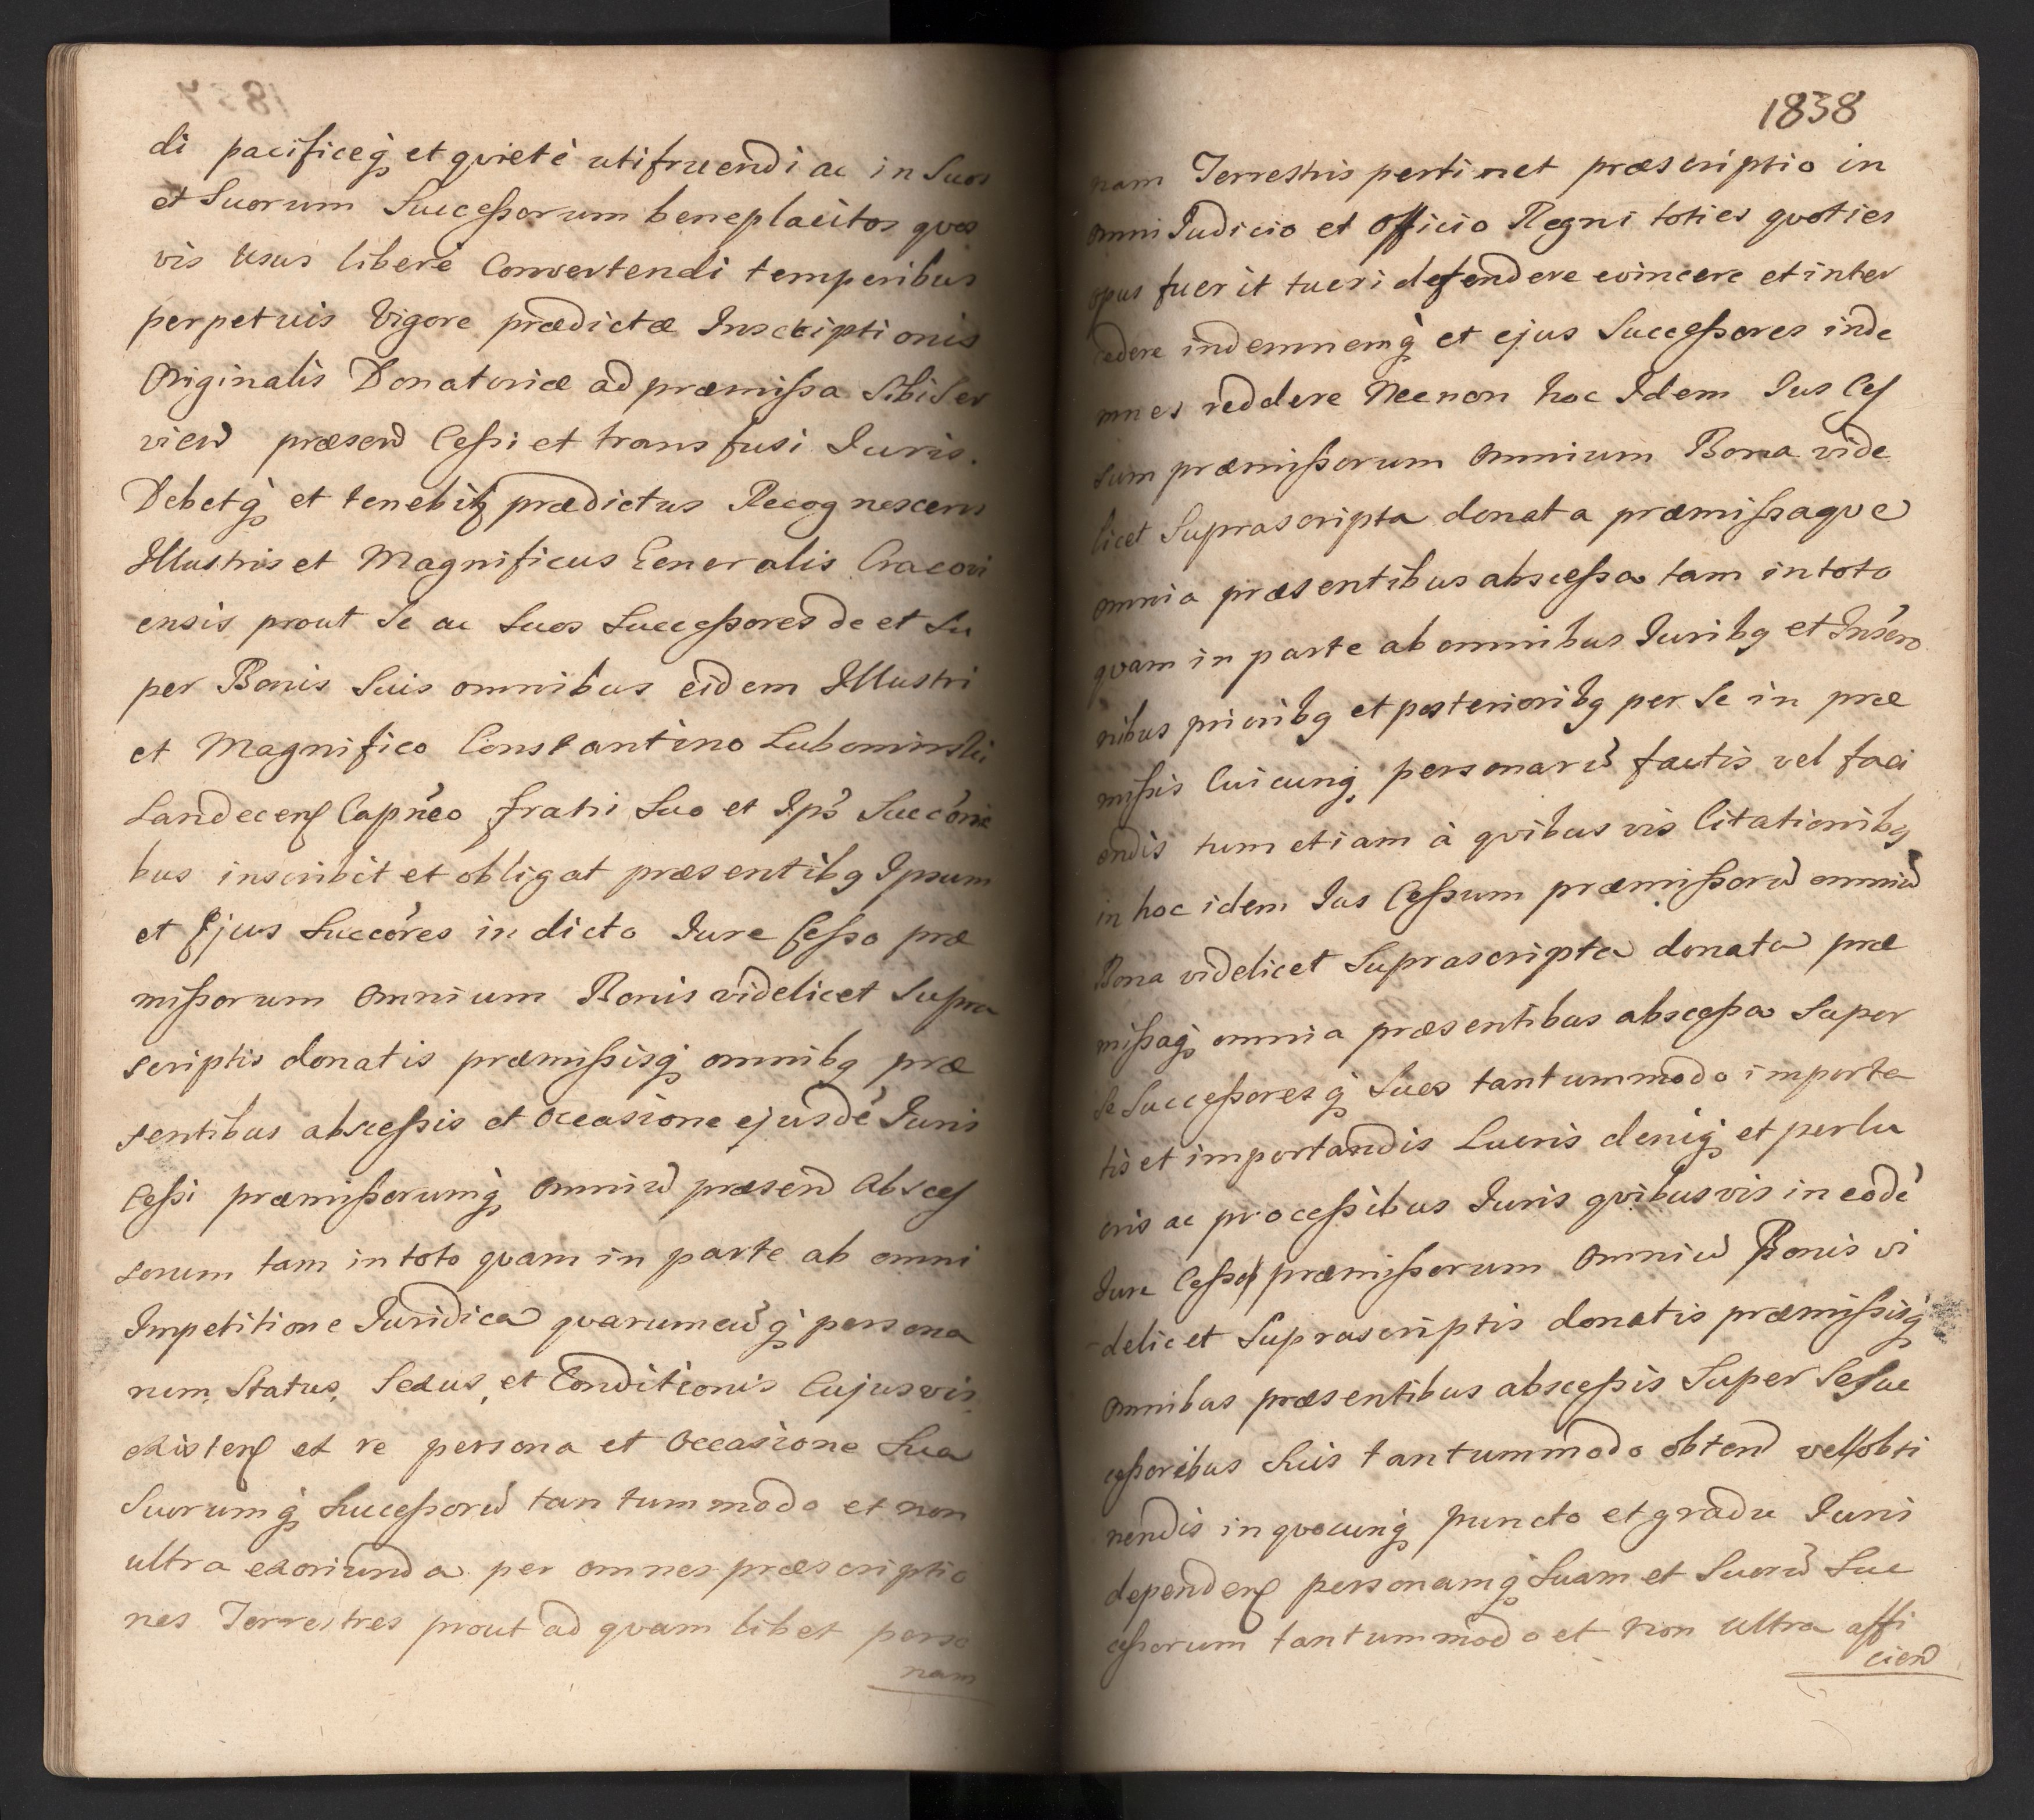 di pacificeq̃ et qvietè utifruendi ac in Suos
et Suorum Successorum beneplacitos qvos
vis Usus liberè Convertendi temporibus
perpetuis Vigore prædictæ Inscriptionis
Originalis Donatoriæ ad præmissa Sibi Ser
vien̄ præsen̄ Cessi et transfusi Juris.
Debetq̃ et tenebitꝫ prædictus Recognoscens
Illustris et Magnificus Generalis Cracovi
ensis prout Se ac Suos Successores de et Su
per Bonis Suis omnibus eidem Illustri
et Magnifico Constantino Lubomirski
Landecenſ Capñeo fratri Suo et Ips̃ Succ̃ori
bus inscribit et obligat præsentibꝫ Ipsum
et Ejus Succ̃ores in dicto Jure Cesso præ
missorum Omnium Bonis videlicet Supra
scriptis donatis præmissisq̃ omnibꝫ præ
sentibus abscessis et Occasione ejusdē Juris
Cessi præmissorumq̃ Omniū præsen̄ Absces
sorum tam in toto qvam in parte ab omni
Impetitione Juridica qvarumcūq̃ persona
rum, Status, Sexus, et Conditionis Cujusvis,
existenſ et re persona et Occasione Sua
Suorumq̃ Successorū tantummodo et non
ultra exoriunda per omnes præscriptio
nes Terrestres prout ad qvam libet perso
nam
1838
nam Terrestris pertinet præscriptio in
omni Judicio et Officio Regni toties qvoties
opus fuerit tueri defendere evincere et inter
cedere indemnemq̃ et ejus Successores inde
mnes reddere Necnon hoc Idem Jus Ces
sum præmissorum Omnium Bona vide
licet Suprascripta donata præmissaqve
omnia præsentibus abscessa tam in toto
qvam in parte ab omnibus Juribꝫ et Ins̃crō
nibus prioribꝫ et posterioribꝫ per Se in præ
missis Cuicunq̃ personarū factis vel faci
endis tum etiam à qvibus vis Citationibꝫ
in hoc idem Jus Cessum præmissorū omniū
Bona videlicet Suprascripta donata præ
missaq̃ omnia præsentibus abscessa Super
Se Successoresq̃ Suos tantummodo importa
tis et importandis Lucris deniq̃ et perlu
cris ac processibus Juris qvibusvis in eodē
Jure Cesso præmissorum Omniū Bonis vi
delicet Suprascriptis donatis præmissisq̃
Omnibus præsentibus abscessis Super Se Suc
cessoribus Suis tantummodo obten̄ vel obti
nendis in qvocunq̃ puncto et gradu Juris
dependenſ personamq̃ Suam et Suorū Suc
cessorum tantummodo et non Ultra affi
cien̄